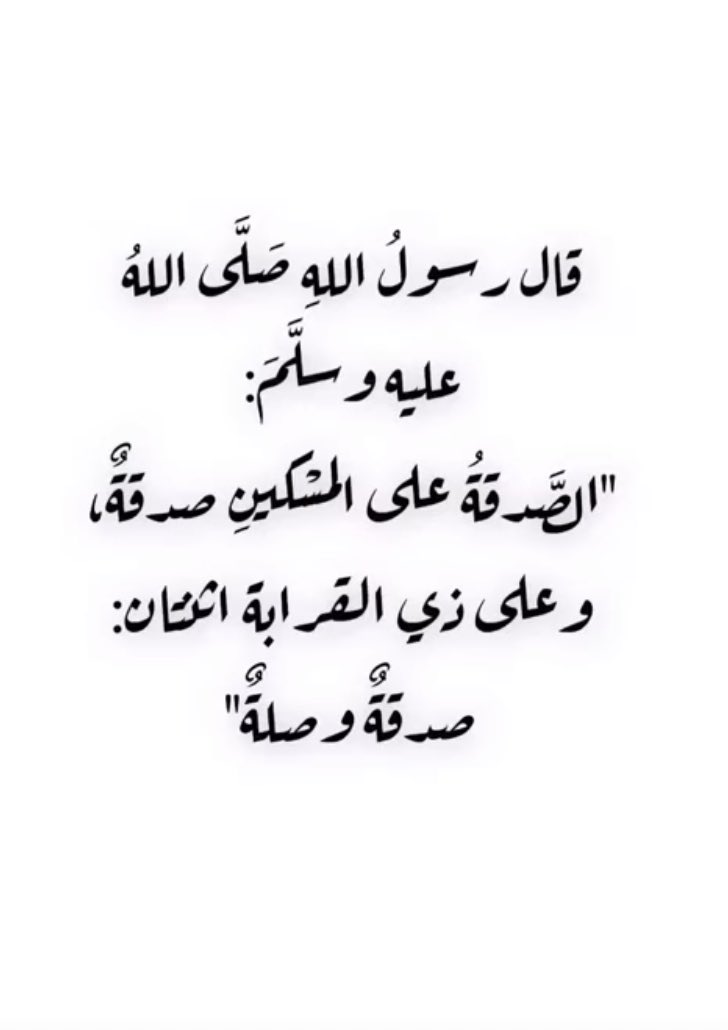 قال رسولُ اللهِ صَلَّى اللهُ
عليه وسلَّمَ:
"الصَّدقةُ على المسْكينِ صدقةٌ،
وعلى ذي القرابة اثنتان:
صدقةٌ وصلةٌ"